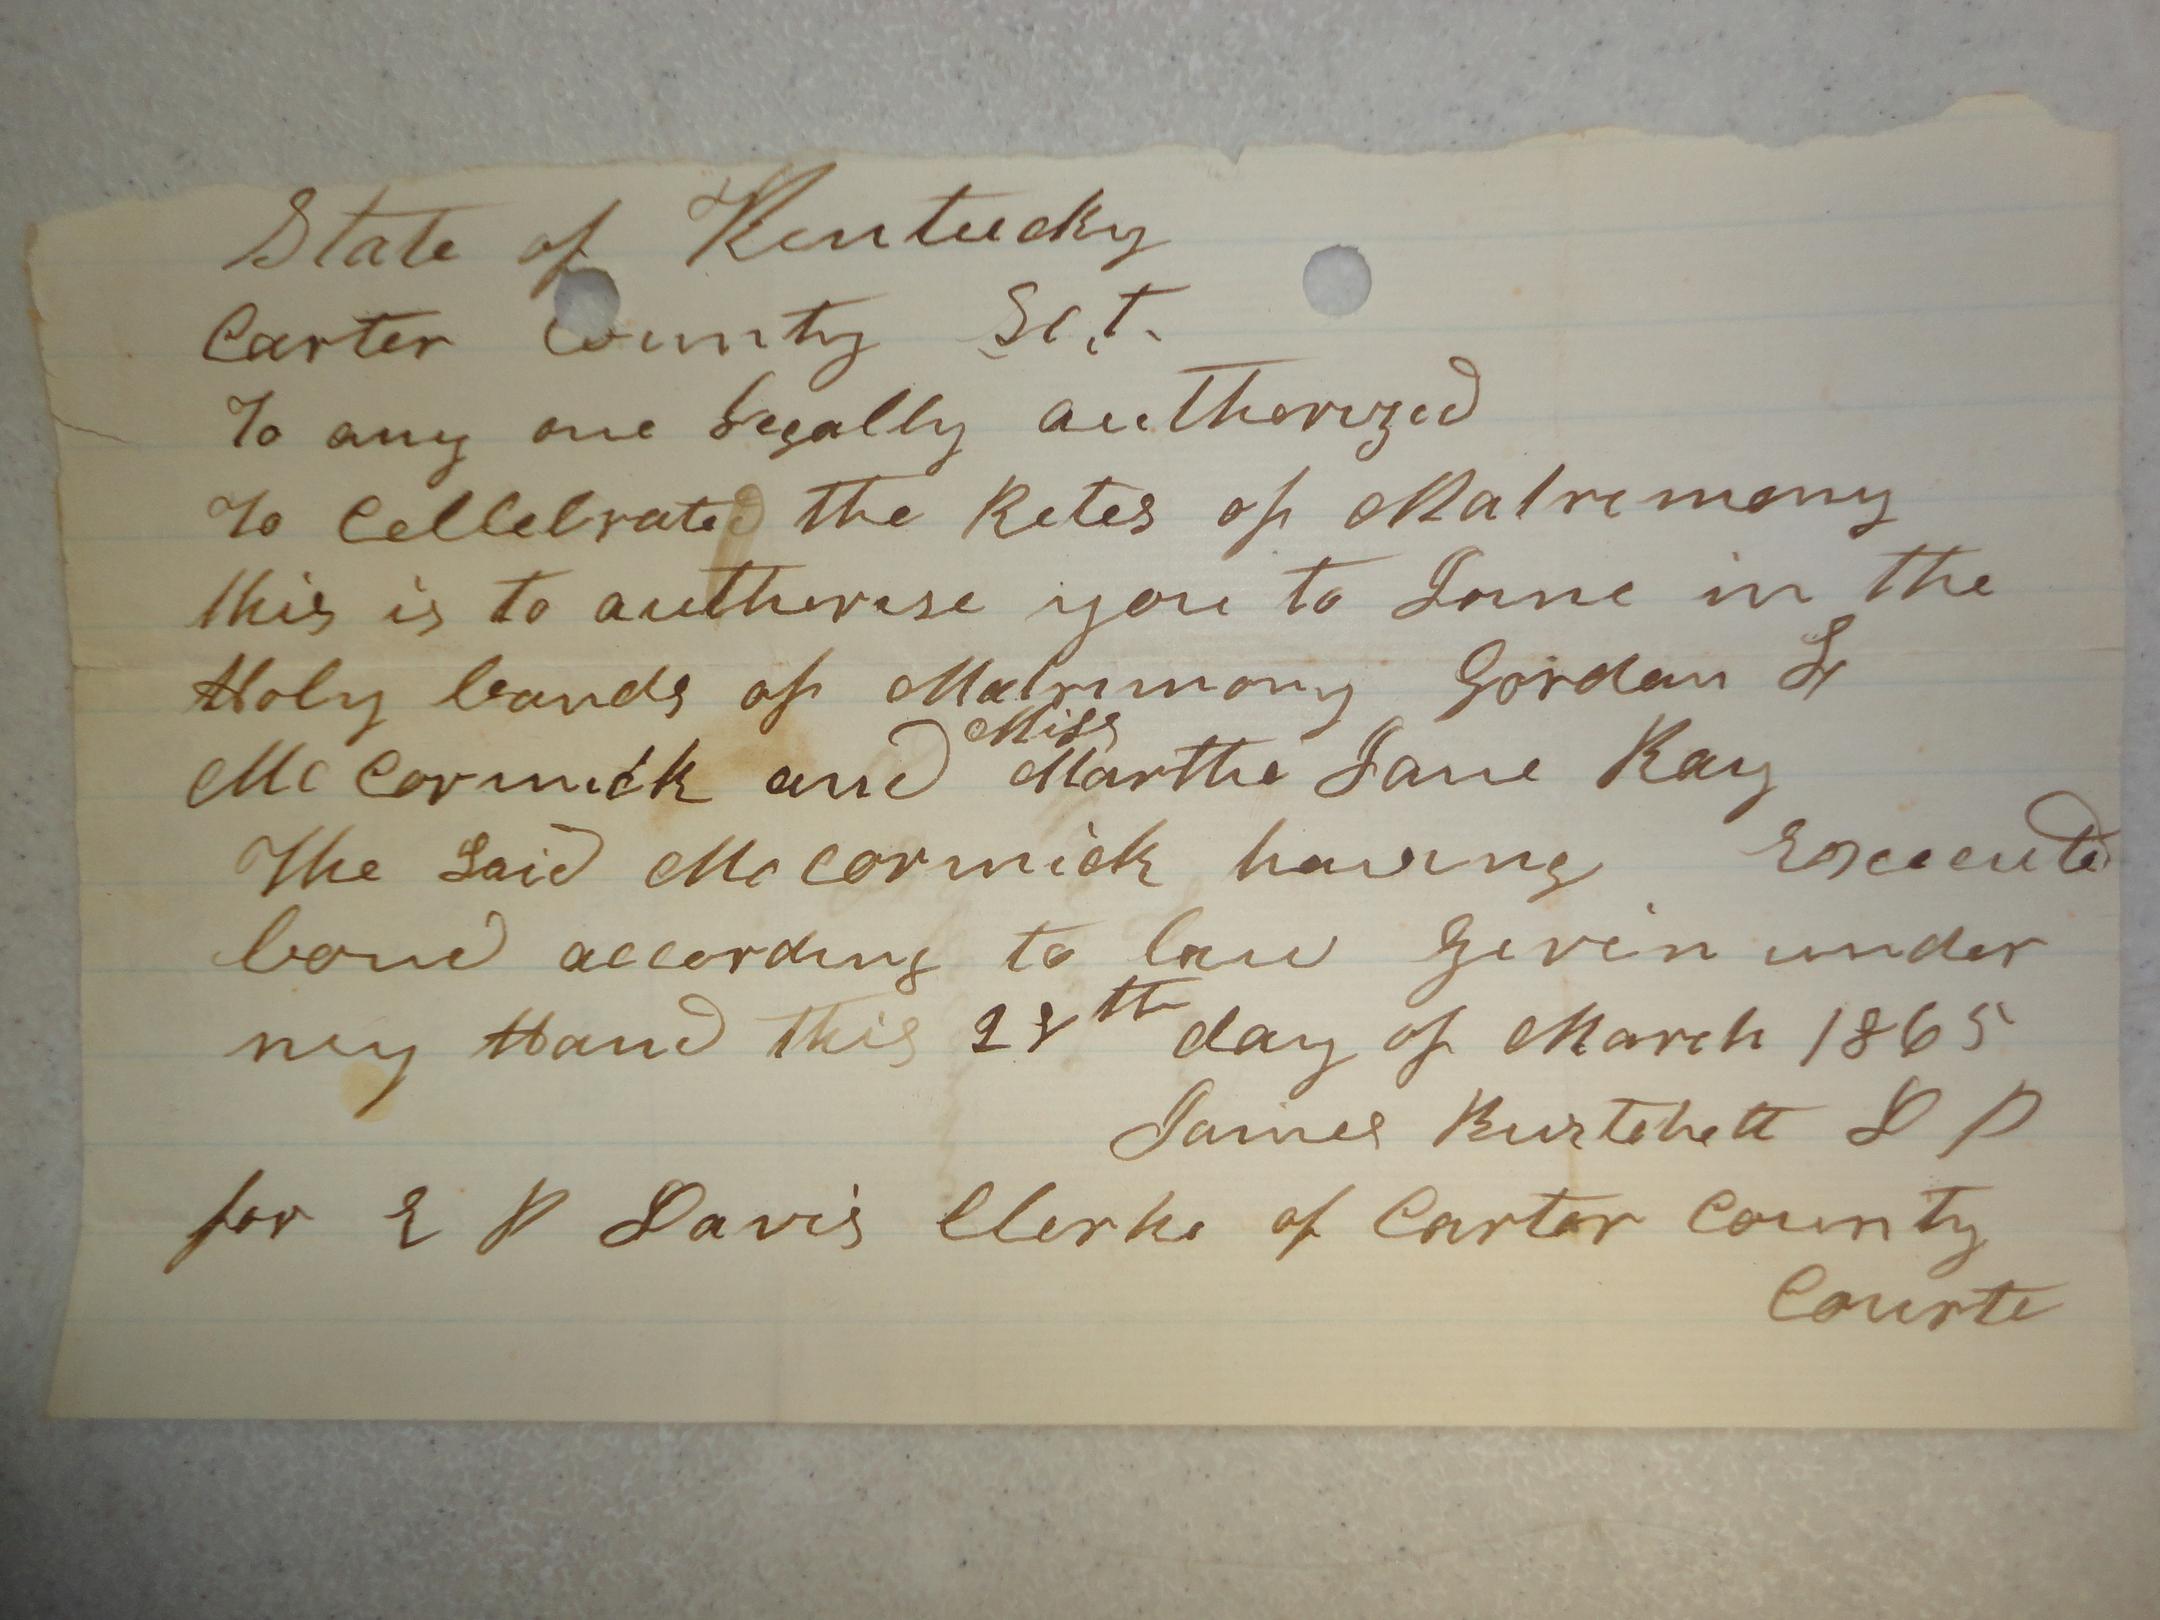 State of Kentucky
Carter County Sc,t.
To any one Legally authorized
To Cellebrated the Retes of Matremony
this is to autherise you to Joine in the
Holy bands of Matrimony Gordan L
Miss
McCormick and Martha Jane Ray
The Said McCormick having Executed
bond according to law Given under
my Hand this 28th day of March 1865
James Burtchett D P
for E P Davis Clerke of Carter County
Courte